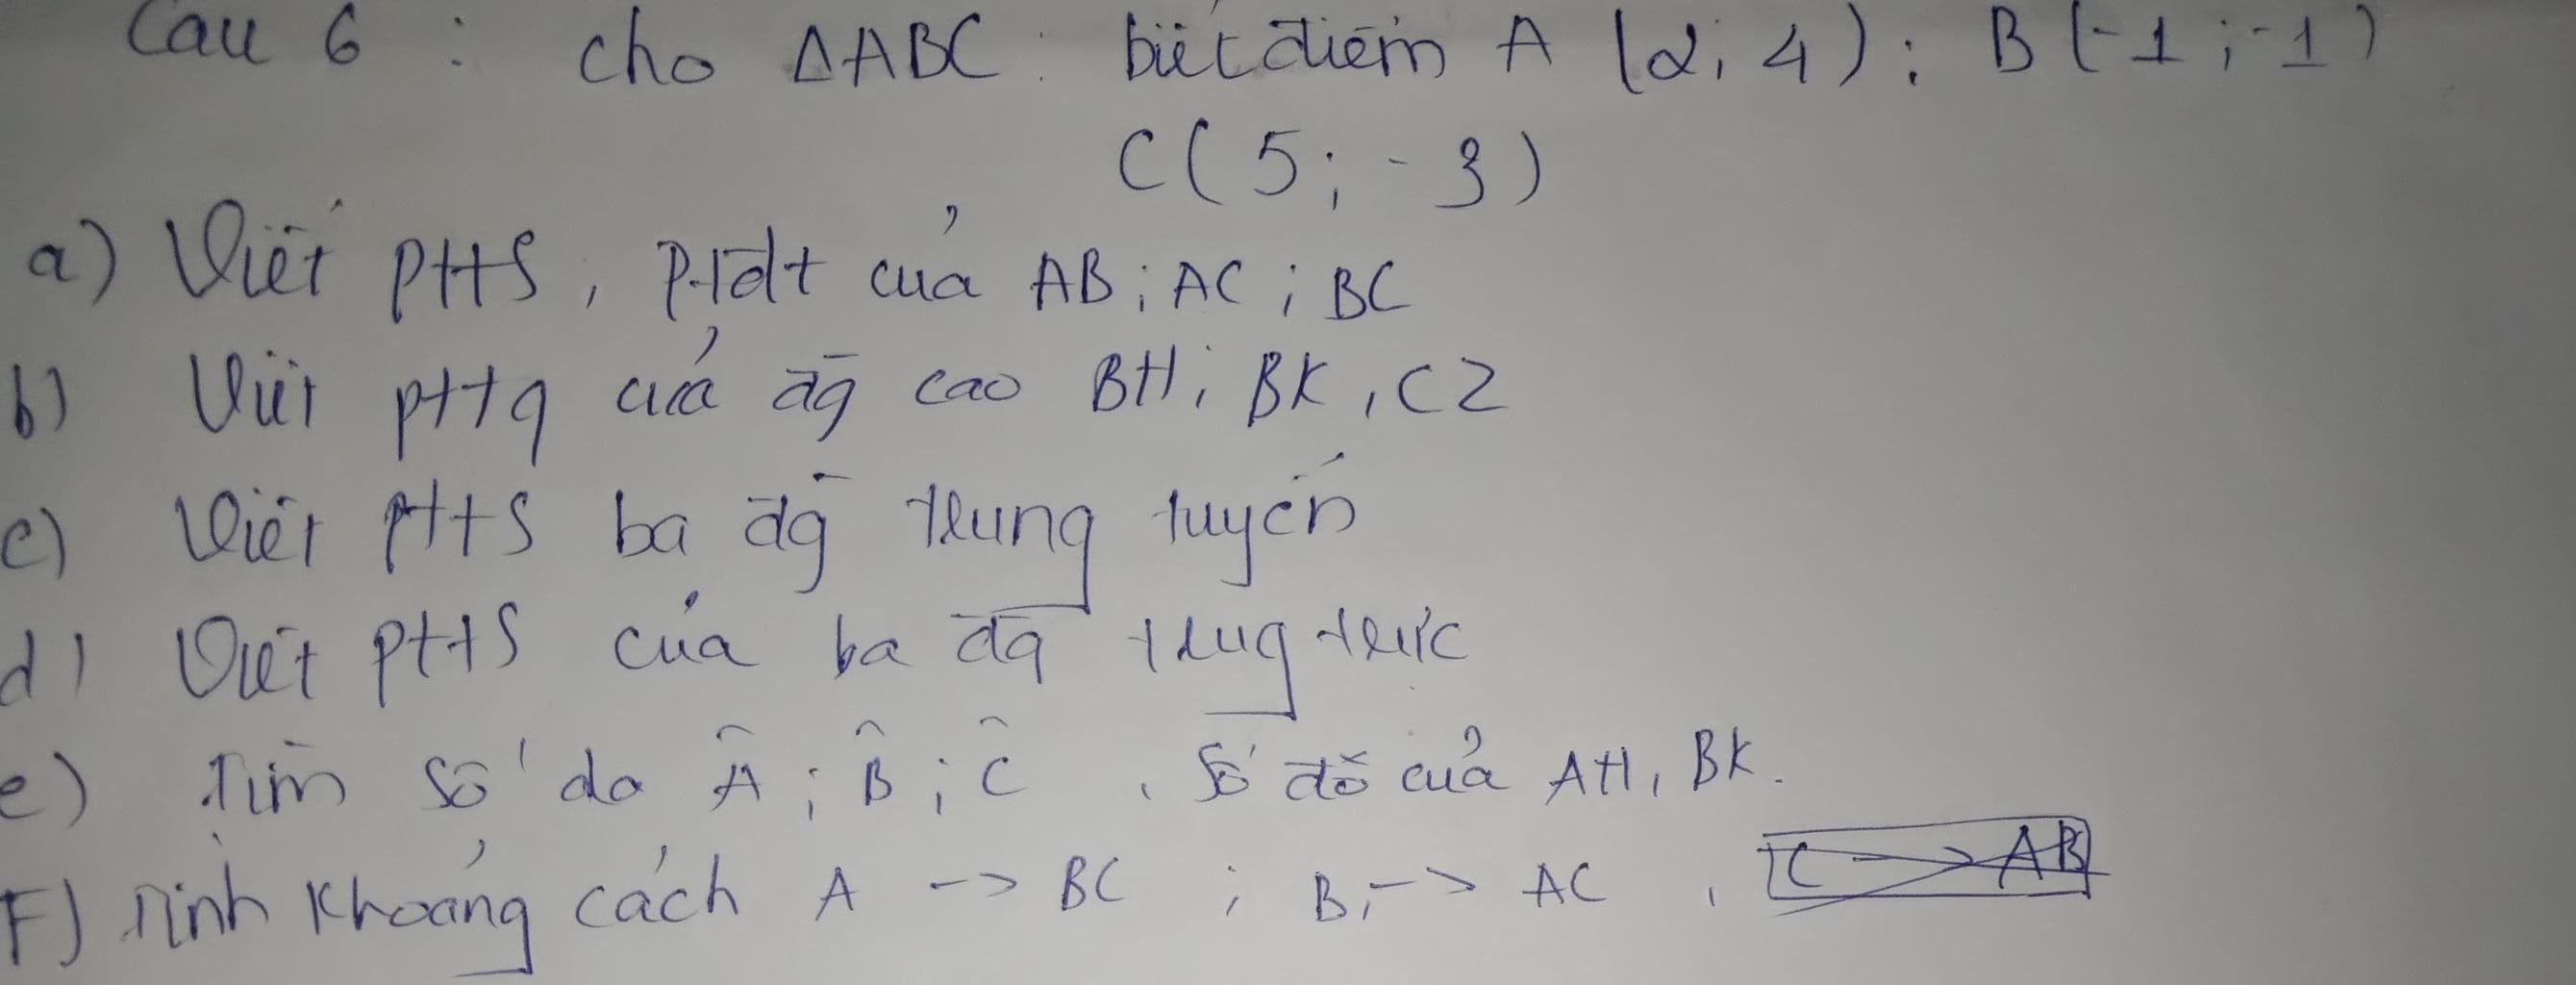 Câu 6 : cho ΔABC : biết điểm A (2; 4) ; B (-1 ; -1)
C ( 5 ; - 3 )
a) Viết PTTS, PTđt của AB ; AC ; BC
b) Viết PTTQ của đg cao BH ; BK , CZ
c) Viết PTTS ba đg trung tuyến
d) Viết PTTS của ba đg trug trực
e) Tìm số đo Â ; B̂ ; Ĉ , Số đo của AH, BK.
F) Tính khoảng cách A -> BC ; B -> AC , C -> AB